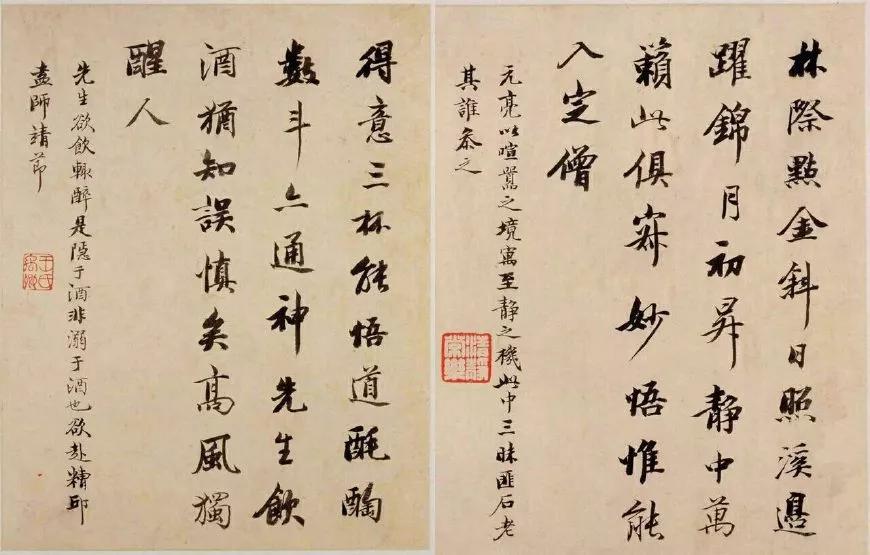 林際點金斜日照溪邊
躍錦月初昇靜中萬
籟此俱寂妙悟惟能
入定僧
元亮以暄囂之境寓至靜之機此中三昧匪石老
其誰叅之
得意三杯能悟道酕醄
數斗亦通神先生飲
酒猶知誤慎矣高風獨
醒人
先生欲飲輒醉是隱于酒非溺于酒也欲赴糟邱
盍師靖節